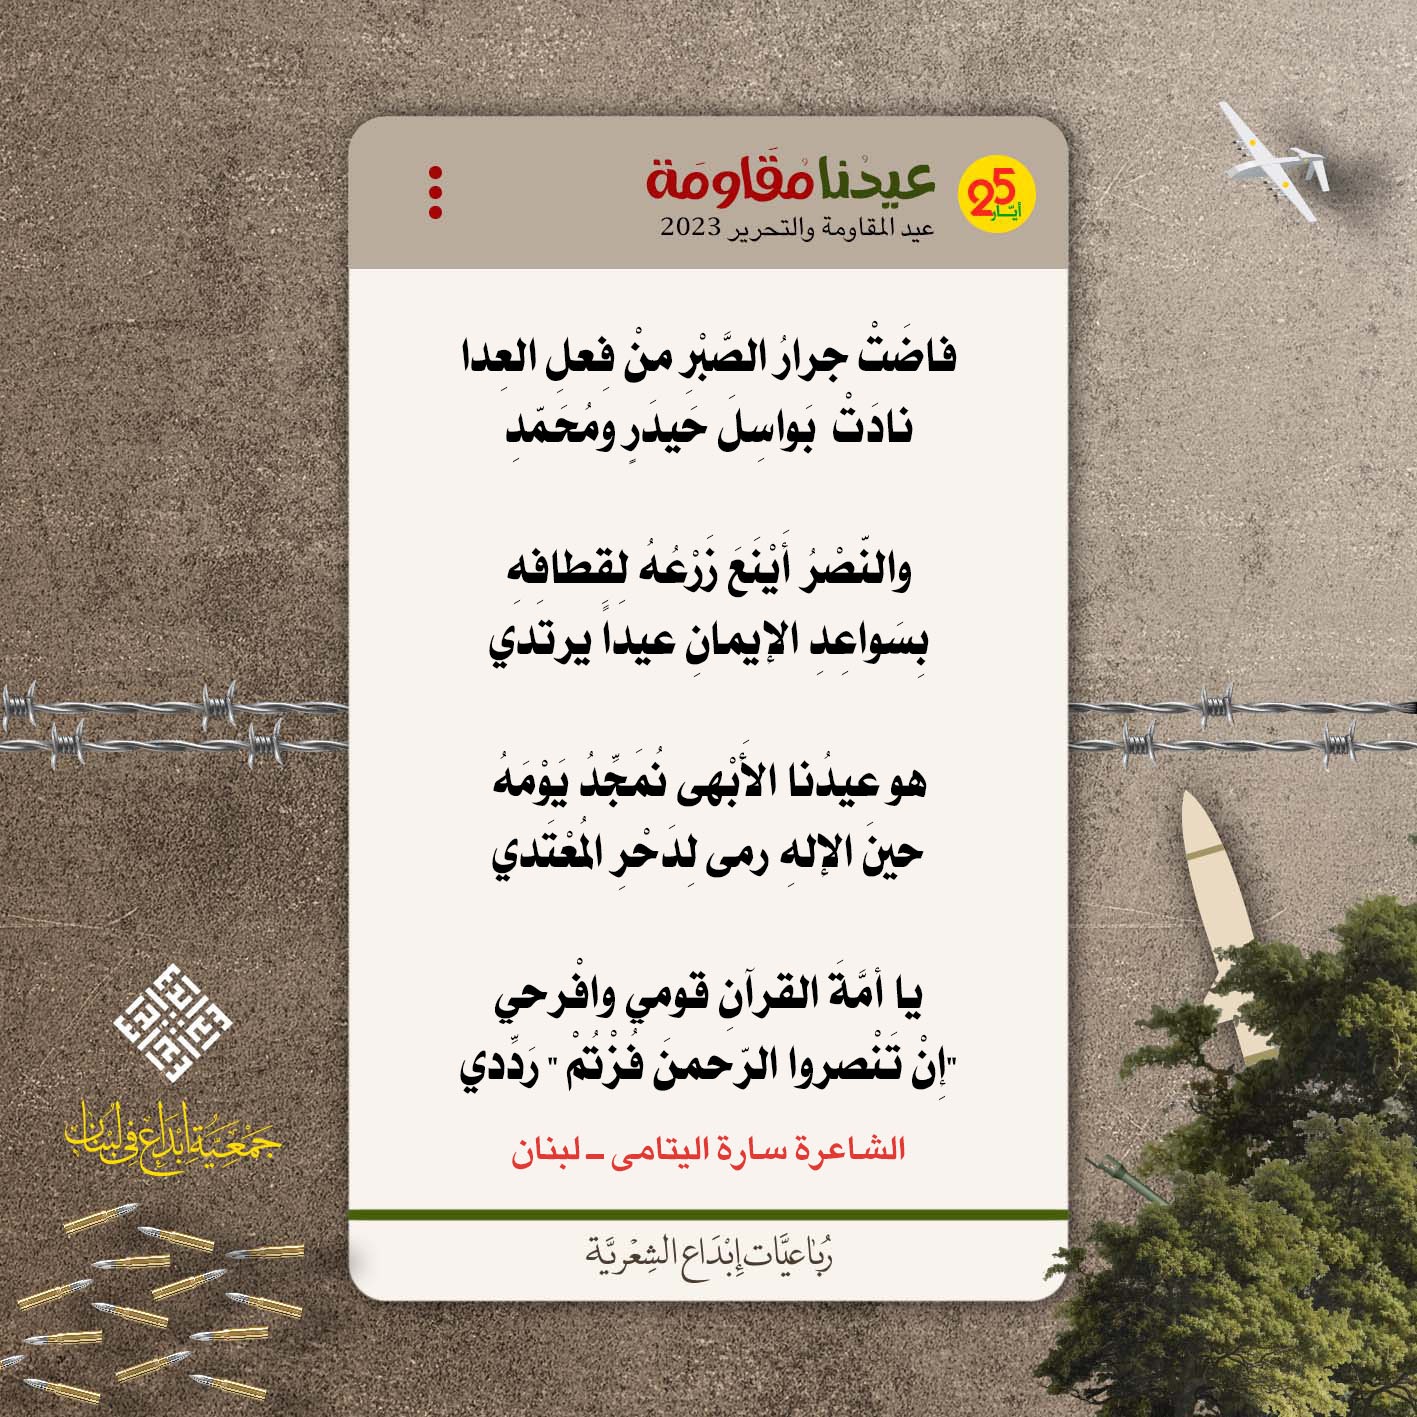 25
أيّار
عيدُنا مُقَاوِمَة
عيد المقاومة والتحرير 2023
فاضَتْ جرارُ الصَّبْرِ منْ فِعلِ العِدا
نادَتْ بَواسِلَ حَيدَرٍ ومُحَمّدِ
والنّصْرُ أَيْنَعَ زَرْعُهُ لِقِطافِهِ
بِسَواعِدِ الإيمانِ عيداً يرتدي
هو عيدُنا الأَبْهى نُمَجِّدُ يَوْمَهُ
حينَ الإلهِ رمى لِدَحْرِ المُعْتَدي
يا أمَّةَ القرآنِ قومي وافْرحي
"إِنْ تَنْصروا الرّحمنَ فُزْتُمْ" رَدِّدي
الشاعرة سارة اليتامى ـ لبنان
رُبَاعيَّات إِبْدَاع الشِعْريَّة
جَمْعِيَّة إبْدَاع في لبنان